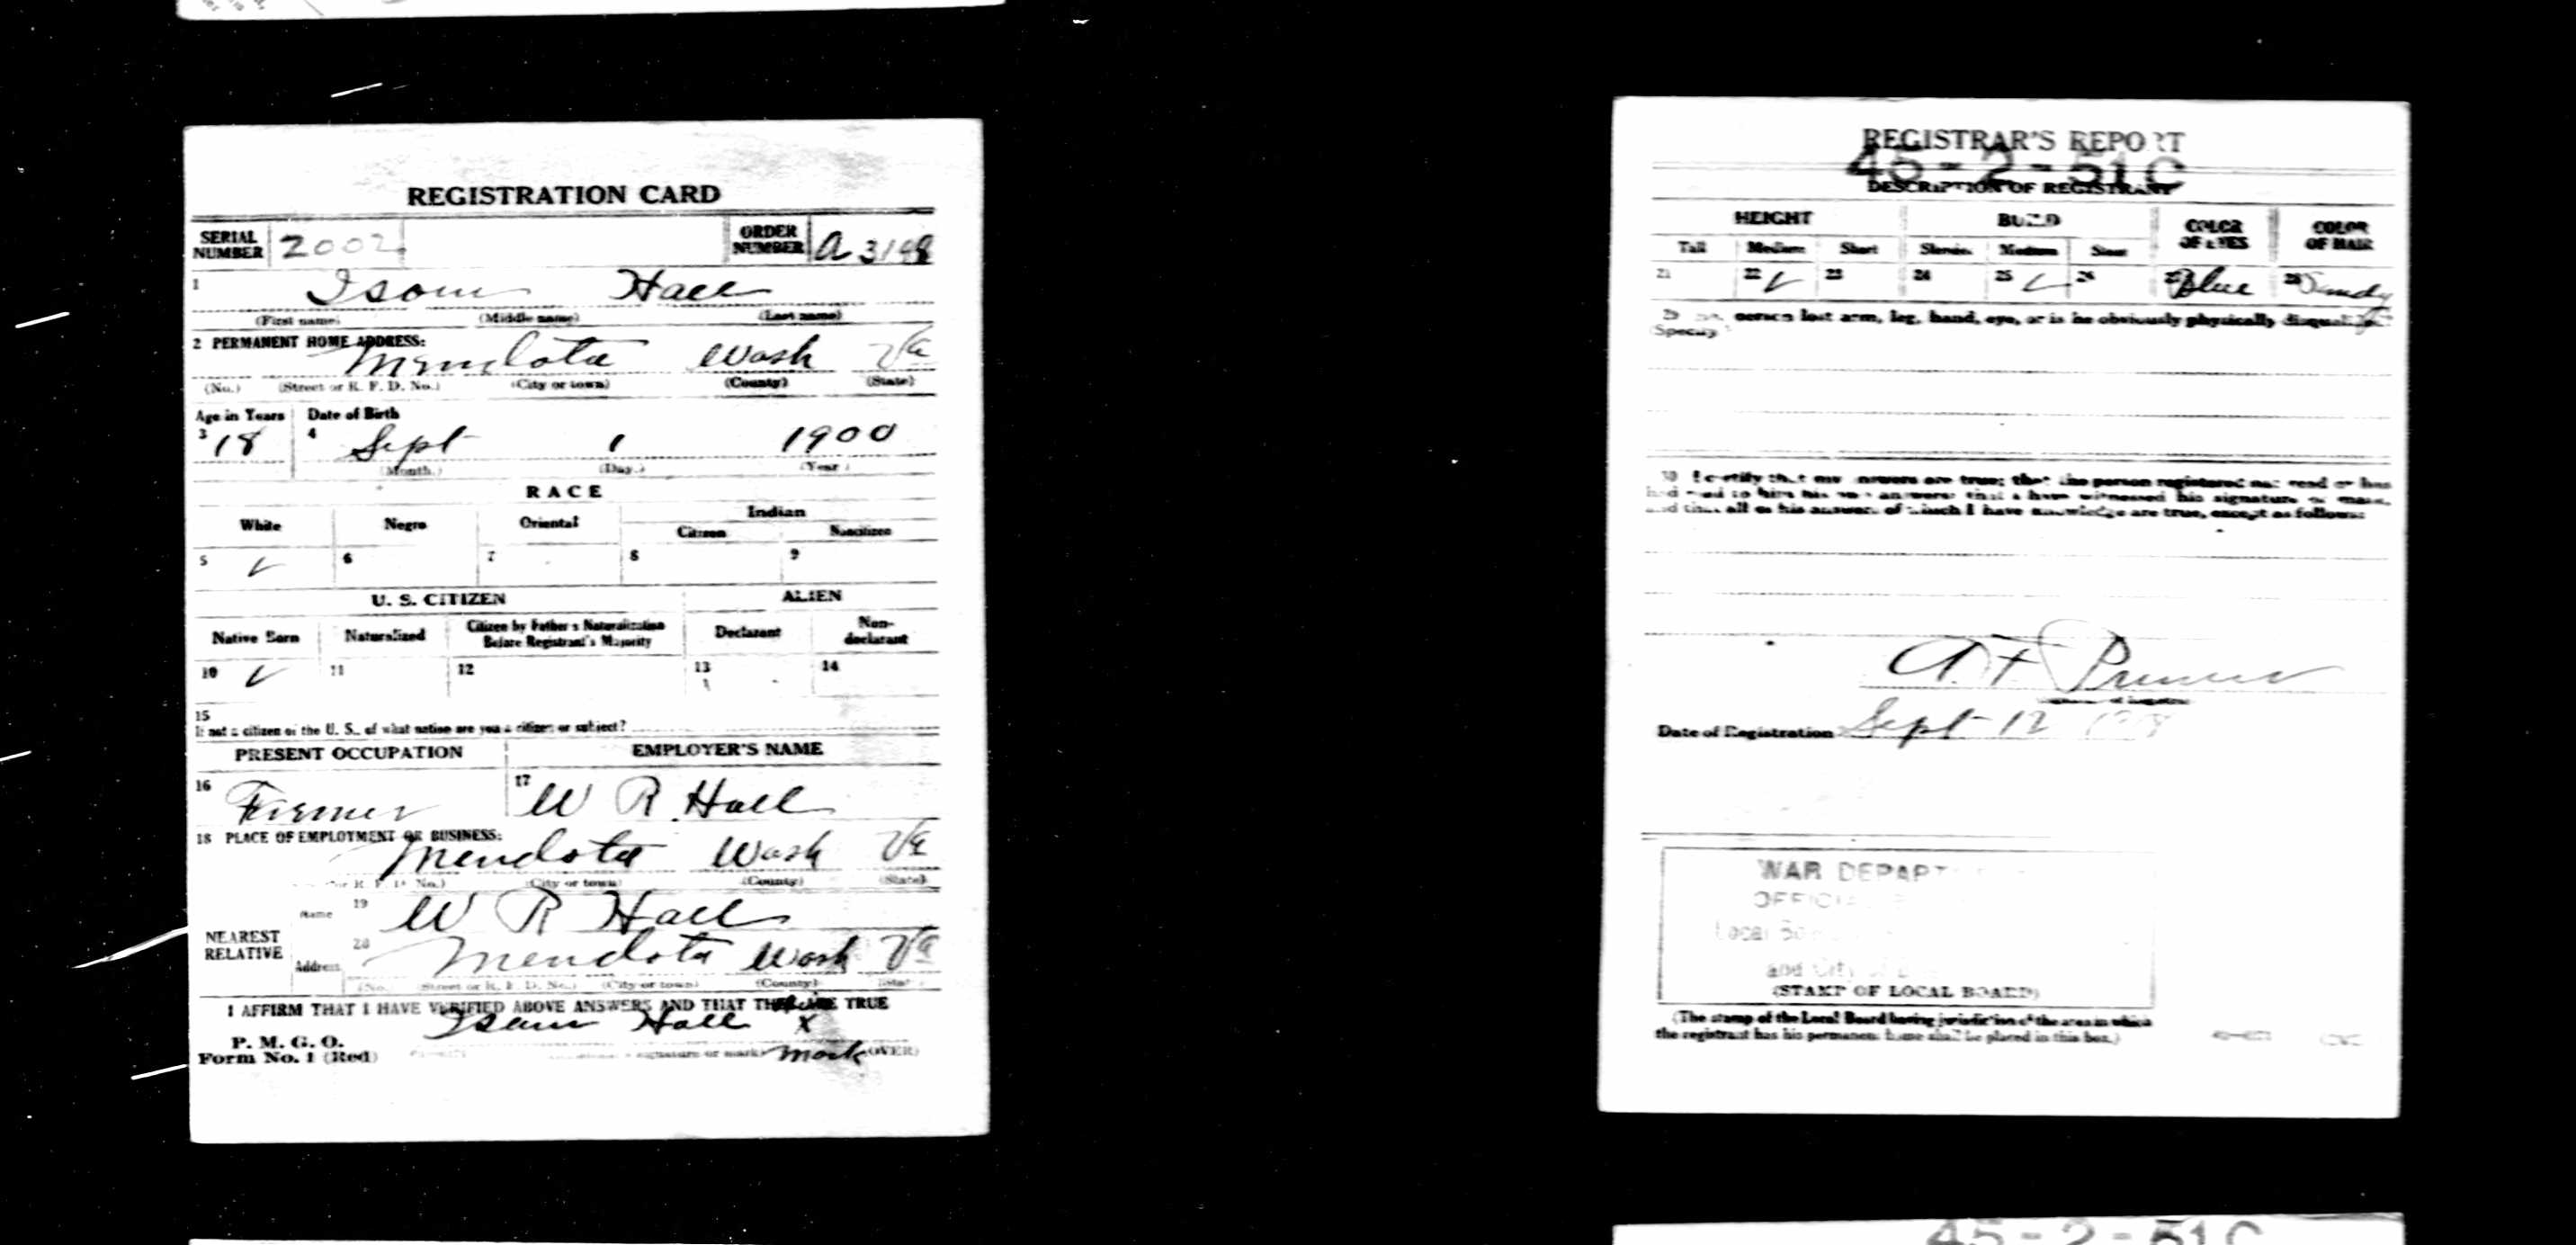 REGISTRATION CARD
SERIAL NUMBER 2002 ORDER NUMBER A 3198
1 Isom Hall
(First name) (Middle name) (Last name)
2 PERMANENT HOME ADDRESS:
Mendota Wash Va
(No.) (Street or R. F. D. No.) (City or town) (County) (State)
Age in Years Date of Birth
3 18 4 Sept 1 1900
(Month.) (Day.) (Year.)
RACE
White Negro Oriental Indian
Citizen Noncitizen
5 ✓ 6 7 8 9
U. S. CITIZEN ALIEN
Native Born Naturalized Citizen by Father's Naturalization Before Registrant's Majority Declarant Non-declarant
10 ✓ 11 12 13 14
15
If not a citizen of the U. S., of what nation are you a citizen or subject?
PRESENT OCCUPATION EMPLOYER'S NAME
16 Farmer 17 W R. Hall
18 PLACE OF EMPLOYMENT OR BUSINESS:
Mendota Wash Va
R. F. D. No.) (City or town) (County) (State)
NEAREST RELATIVE
Name 19 W R Hall
Address 20 Mendota Wash Va
(No.) (Street or R. F. D. No.) (City or town) (County) (State)
I AFFIRM THAT I HAVE VERIFIED ABOVE ANSWERS AND THAT THEY ARE TRUE
Isom Hall X
P. M. G. O.
Form No. 1 (Red) signature or mark) mark (OVER)
REGISTRAR'S REPORT
45-2-51 C
DESCRIPTION OF REGISTRANT
HEIGHT BUILD COLOR OF EYES COLOR OF HAIR
Tall Medium Short Slender Medium Stout
21 22 ✓ 23 24 25 ✓ 26 27 Blue 28 Sandy
29 person lost arm, leg, hand, eye, or is he obviously physically disqualified?
(Specify.)
30 I certify that my answers are true; that the person registered has read or has
had read to him his own answers; that I have witnessed his signature or mark,
and that all of his answers of which I have knowledge are true, except as follows:
A. F.
Date of Registration Sept 12 1918
WAR DEPART
OFFICIAL
Local Bo
and City
(STAMP OF LOCAL BOARD)
(The stamp of the Local Board having jurisdiction of the area in which
the registrant has his permanent home shall be placed in this box.)
45-2-51 C